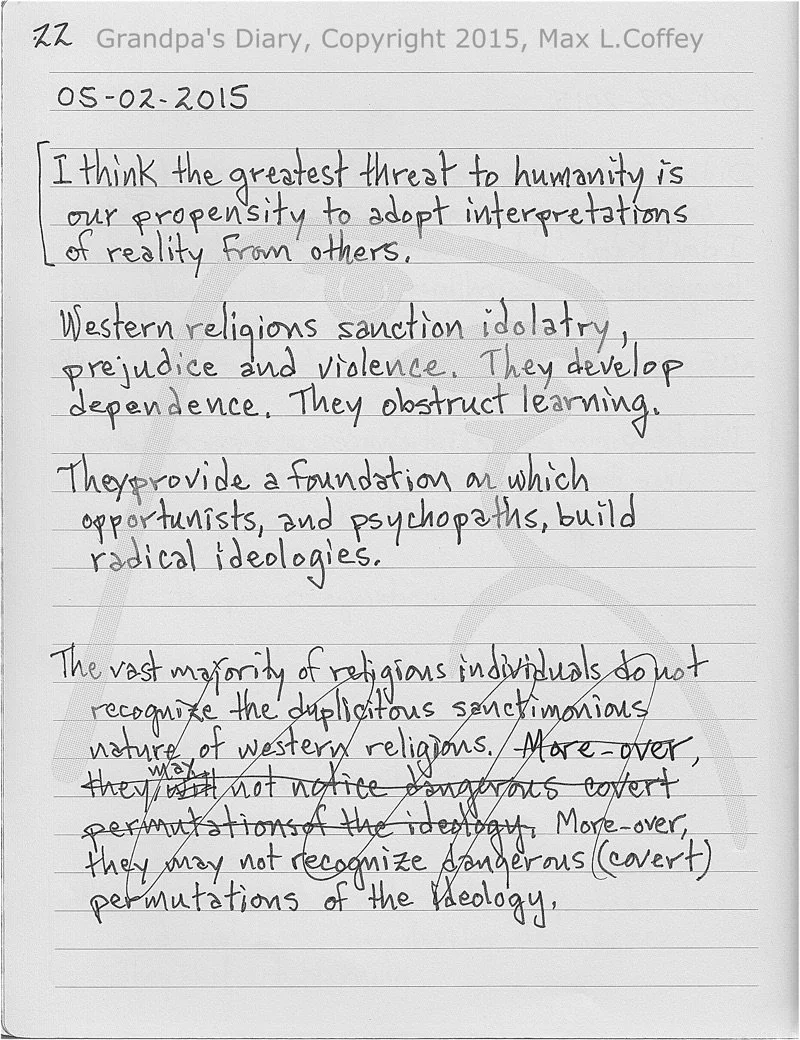 22 Grandpa's Diary, Copyright 2015, Max L.Coffey
05-02-2015
I think the greatest threat to humanity is
our propensity to adopt interpretations
of reality from others.
Western religions sanction idolatry,
prejudice and violence. They develop
dependence. They obstruct learning.
They provide a foundation on which
opportunists, and psychopaths, build
radical ideologies.
The vast majority of religious individuals do not
recognize the duplicitous sanctimonious
nature of western religions. More-over,
may
they will not notice dangerous covert
permutations of the ideology. More-over,
they may not recognize dangerous (covert)
permutations of the ideology.